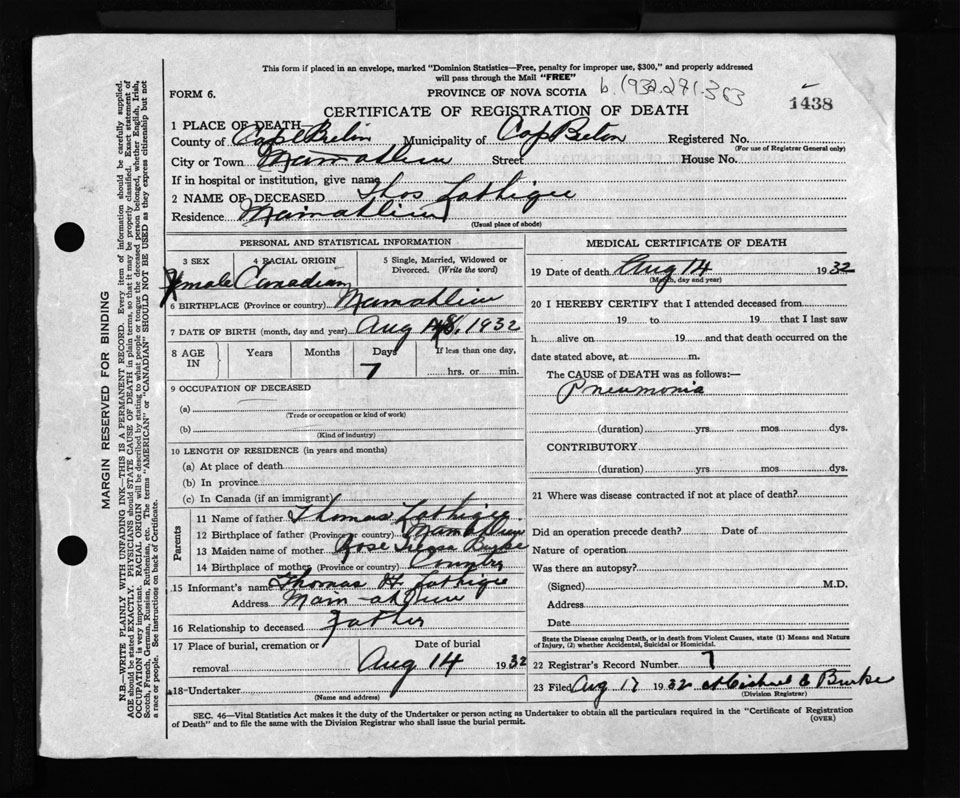 This form if placed in an envelope, marked "Dominion Statistics—Free, penalty for improper use, $300," and properly addressed
will pass through the Mail "FREE"
FORM 6.
PROVINCE OF NOVA SCOTIA
b. 1932-271-363
1438
CERTIFICATE OF REGISTRATION OF DEATH
1 PLACE OF DEATH—
County of Cape Breton Municipality of Cap Breton Registered No.
(For use of Registrar General only)
City or Town Mainadieu Street House No.
If in hospital or institution, give name
2 NAME OF DECEASED Thos Lathigee
Residence Mainadieu
(Usual place of abode)
PERSONAL AND STATISTICAL INFORMATION
3 SEX
4 RACIAL ORIGIN
5 Single, Married, Widowed or Divorced. (Write the word)
male Canadian
6 BIRTHPLACE (Province or country) Mainadieu
7 DATE OF BIRTH (month, day and year) Aug 8, 1932
8 AGE IN
Years
Months
Days
If less than one day,
7
hrs. or min.
9 OCCUPATION OF DECEASED
(a)
(Trade or occupation or kind of work)
(b)
(Kind of industry)
10 LENGTH OF RESIDENCE (in years and months)
(a) At place of death
(b) In province
(c) In Canada (if an immigrant)
Parents
11 Name of father Thomas Lathigee
12 Birthplace of father (Province or country) Mainadieu
13 Maiden name of mother Rose Burke
14 Birthplace of mother (Province or country) Country
15 Informant's name Thomas H. Lathigee
Address Main-adieu
16 Relationship to deceased Father
17 Place of burial, cremation or removal
Date of burial
Aug 14 1932
18-Undertaker
(Name and address)
MEDICAL CERTIFICATE OF DEATH
19 Date of death Aug 14 1932
(Month, day and year)
20 I HEREBY CERTIFY that I attended deceased from
19 to 19 that I last saw
h alive on 19 and that death occurred on the
date stated above, at m.
The CAUSE of DEATH was as follows:—
Pneumonia
(duration) yrs. mos. dys.
CONTRIBUTORY
(duration) yrs. mos. dys.
21 Where was disease contracted if not at place of death?
Did an operation precede death? Date of
Nature of operation
Was there an autopsy?
(Signed) M.D.
Address
Date
State the Disease causing Death, or in death from Violent Causes, state (1) Means and Nature
of Injury, (2) whether Accidental, Suicidal or Homicidal.
22 Registrar's Record Number 7
23 Filed Aug 17 1932 Michael E Burke
(Division Registrar)
SEC. 46—Vital Statistics Act makes it the duty of the Undertaker or person acting as Undertaker to obtain all the particulars required in the "Certificate of Registration
of Death" and to file the same with the Division Registrar who shall issue the burial permit.
(OVER)
MARGIN RESERVED FOR BINDING
N.B.—WRITE PLAINLY WITH UNFADING INK—THIS IS A PERMANENT RECORD. Every item of information should be carefully supplied.
AGE should be stated EXACTLY. PHYSICIANS should STATE CAUSE OF DEATH in plain terms, so that it may be properly classified. Exact statement of
OCCUPATION is very important. RACIAL ORIGIN will be described by stating to what people or tongue the deceased person belonged, whether English, Irish,
Scotch, French, German, Russian, Ruthenian, etc. The terms "AMERICAN" or "CANADIAN" SHOULD NOT BE USED as they express citizenship but not
a race or people. See instructions on back of Certificate.